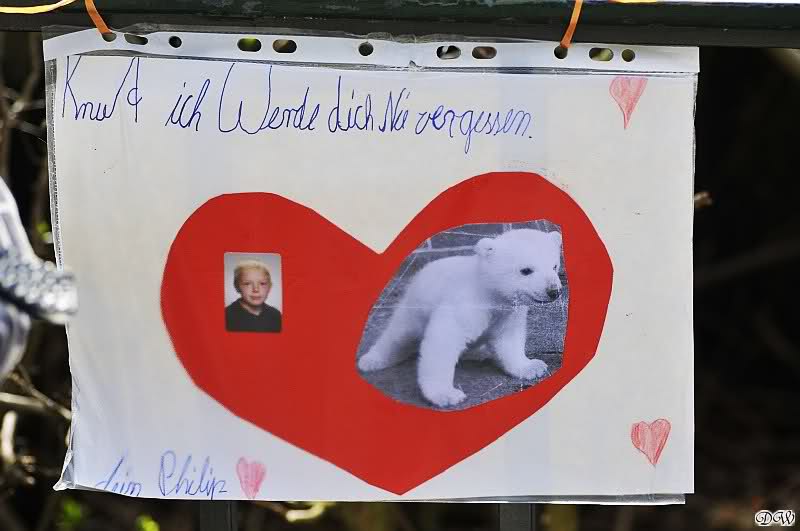 Knut ich Werde dich Nie vergessen.
dein Philip
DW